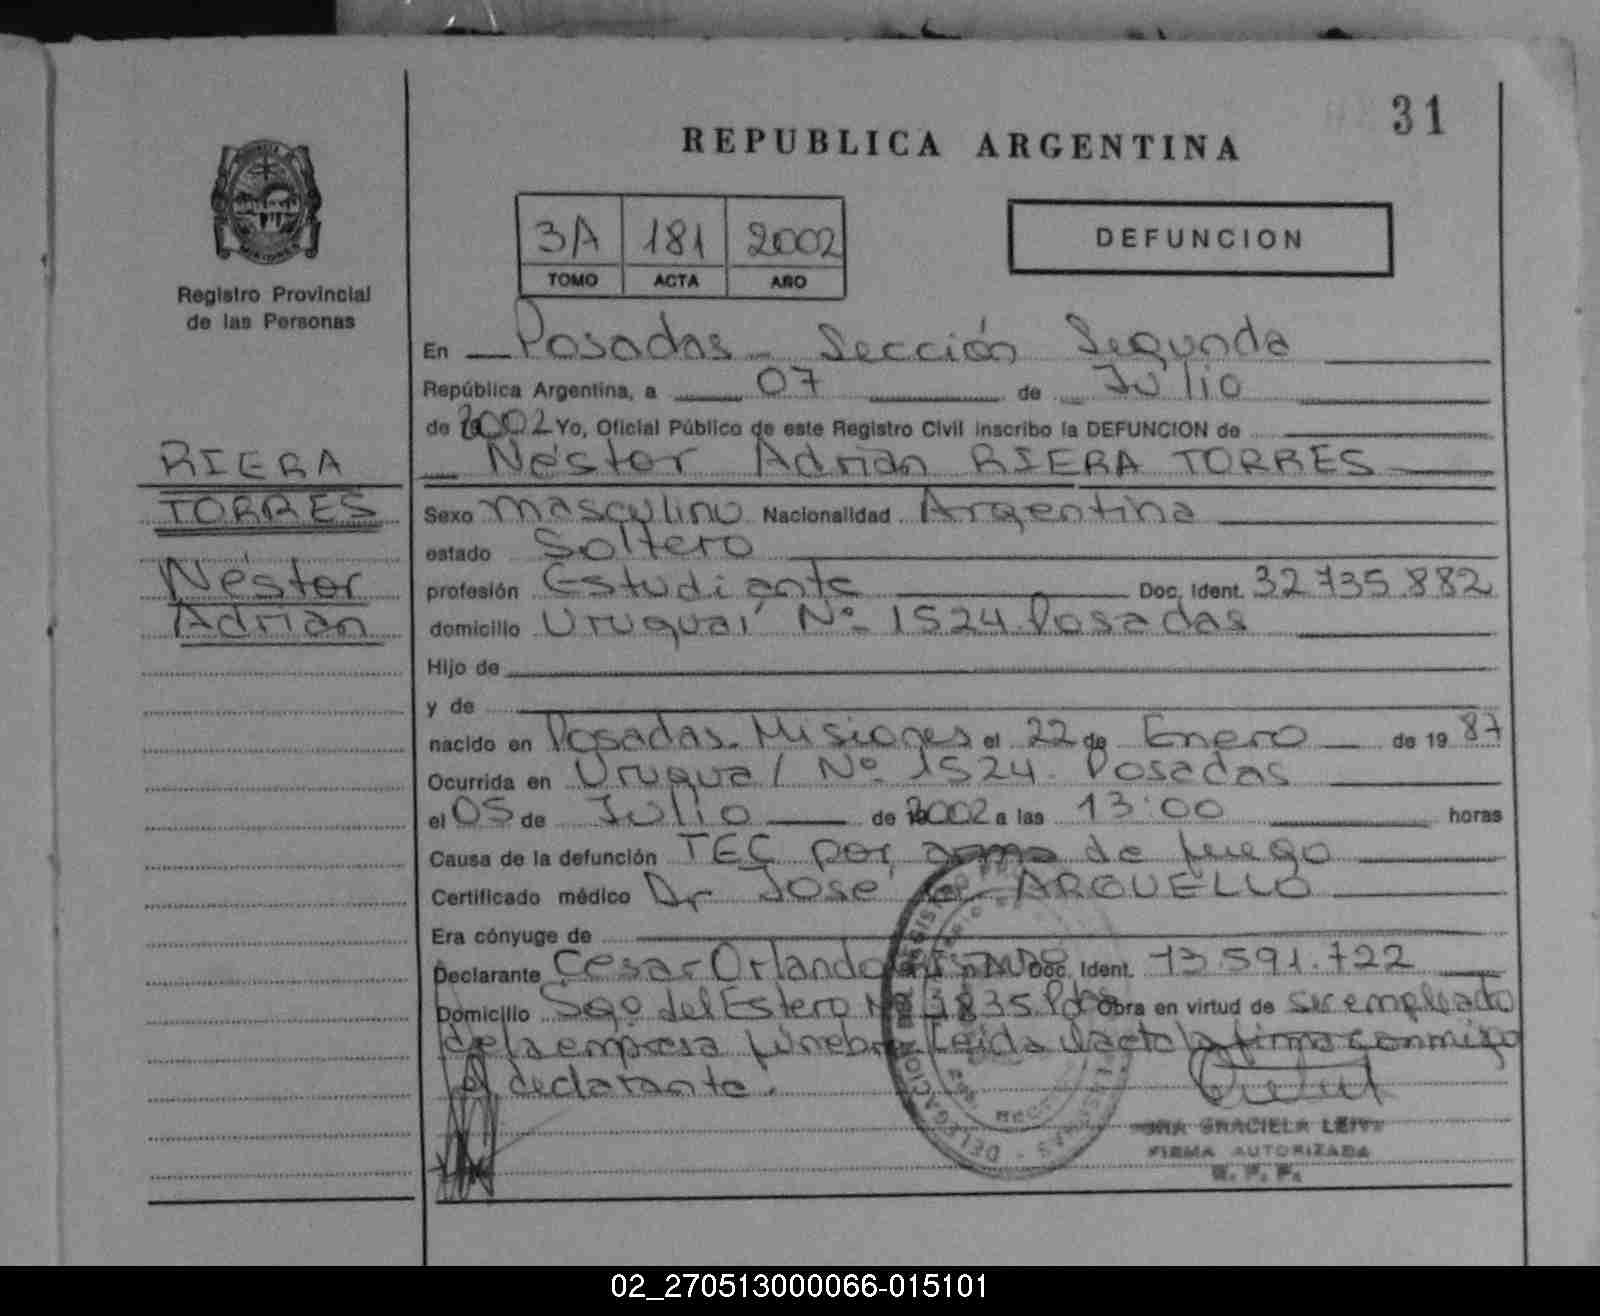 31
REPUBLICA ARGENTINA
3A 181 2002
TOMO ACTA AÑO
DEFUNCION
Registro Provincial
de las Personas
En Posadas - Sección Segunda
República Argentina, a 07 de Julio
de 2002 Yo, Oficial Público de este Registro Civil inscribo la DEFUNCION de
RIERA
Néstor Adrián RIERA TORRES
TORRES
Sexo masculino Nacionalidad Argentina
estado Soltero
Néstor
profesión Estudiante Doc. Ident. 32.735.882
Adrián
domicilio Uruguaí Nº 1524 Posadas
Hijo de
y de
nacido en Posadas-Misiones el 22 de Enero de 1987
Ocurrida en Uruguaí Nº 1524. Posadas
el 05 de Julio de 2002 a las 13:00 horas
Causa de la defunción TEC por arma de fuego
Certificado médico Dr José ARGUELLO
Era cónyuge de
Declarante Cesar Orlando Doc. Ident. 13.591.722
Domicilio Sgo. del Estero Nº 1835 Pdas Obra en virtud de ser empleado
de la empresa fúnebre Leída el acta la firma conmigo
el declarante.
DELEGACION
GRACIELA
FIRMA AUTORIZADA
R. P. P.
02_270513000066-015101